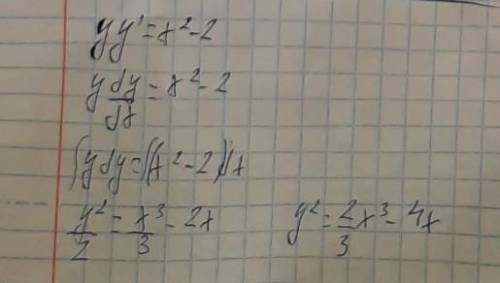 yy' = x² - 2
y dy/dx = x² - 2
∫y dy = ∫(x² - 2)dx
y²/2 = x³/3 - 2x    y² = 2/3 x³ - 4x